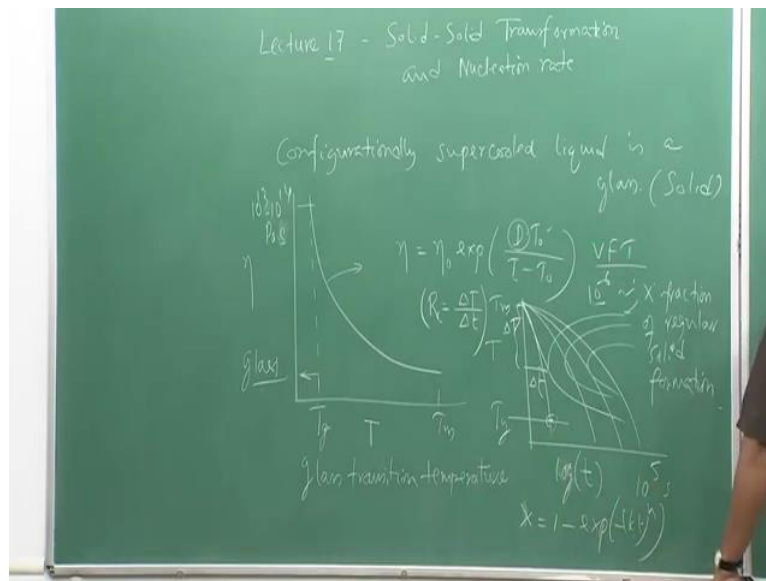 Lecture 17 - Solid-Solid Transformation
and Nucleation rate
Configurationally supercooled liquid is a
glass. (Solid)
10¹² 10¹⁴
Pa.s
η
glass
Tg T Tm
glass transition temperature
η = η₀ exp (D T₀ / T - T₀) VFT
(R = ΔT / Δt)
Tm
ΔT
T
Δt
Tg
10⁻⁶ ~ X fraction
of regular
solid
formation.
log(t) 10⁵ s
X = 1 - exp(-(kt)ⁿ)